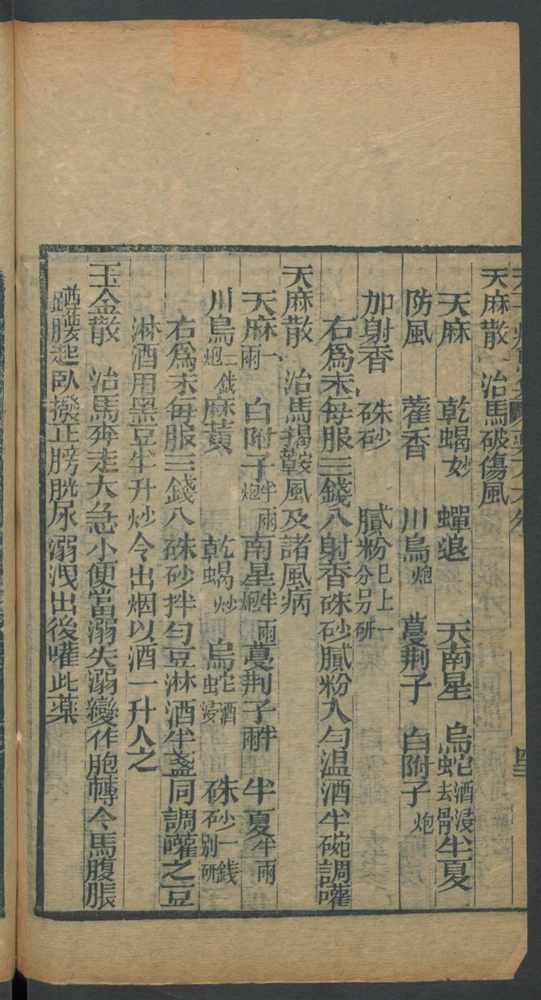 天麻散 治馬破傷風
天麻 乾蝎妙 蟬退 天南星 烏蛇酒浸去骨 半夏
防風 藿香 川烏炮 蔓荆子 白附子炮
加射香 硃砂 膩粉巳上一分另研
右爲末每服三錢入射香硃砂膩粉入勻温酒半碗調嚾
天麻散 治馬揭鞍風及諸風病
天麻一兩 白附子半兩炮 南星半兩炮 蔓荆子半兩 半夏半兩
川烏二戔炮 麻黄 乾蝎炒 烏蛇酒浸 硃砂一錢別研
右爲末每服三錢入硃砂拌勻豆淋酒半盞同調嚾之豆
淋酒用黑豆半升炒令出烟以酒一升入之
玉金散 治馬奔走大急小便當溺失溺變作胞轉令馬腹脹
蹲腰起卧撥正膀胱尿溺洩出後嚾此薬